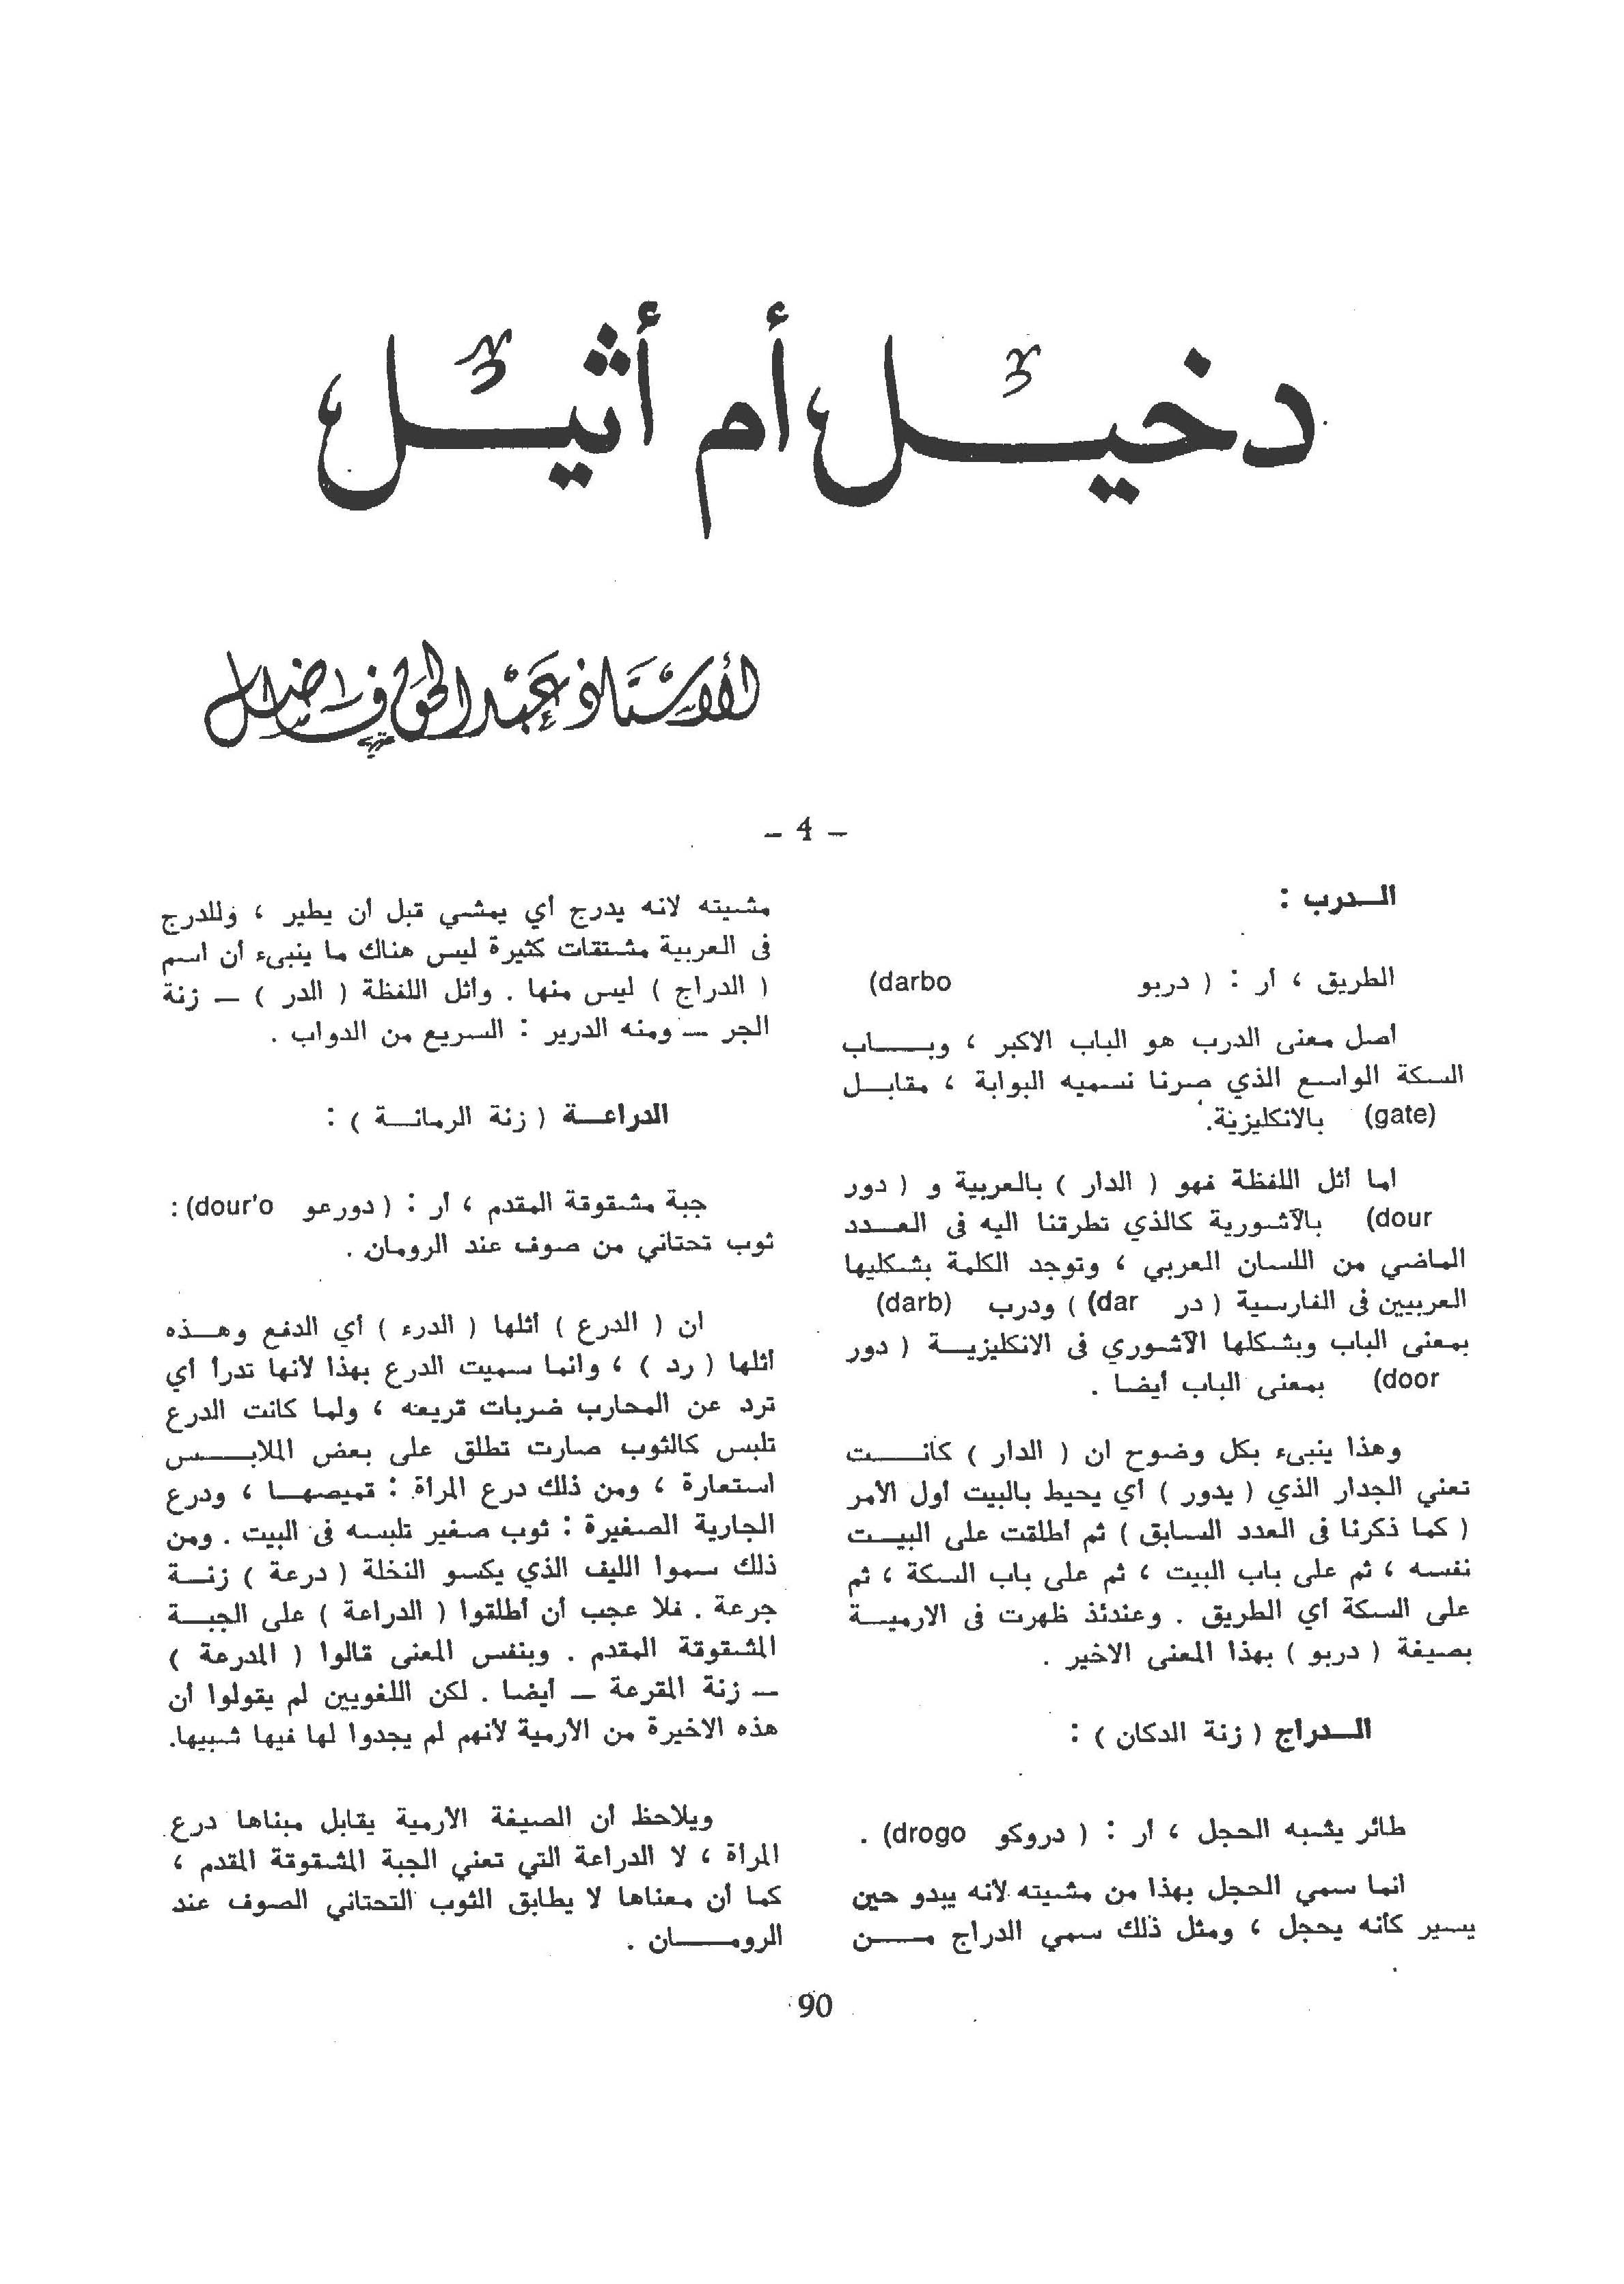 دخيل أم أثيل
للأستاذ عبد الحق فاضل
– 4 –
الـدرب :
الطريق ، أر : ( دربو darbo)
أصل معنى الدرب هو الباب الاكبر ، وبـــاب
السكة الواسع الذي صرنا نسميه البوابة ، مقابـل
(gate) بالانكليزية.
اما أثل اللفظة فهو ( الدار ) بالعربية و ( دور
dour) بالآشورية كالذي تطرقنا اليه فى العـدد
الماضي من اللسان العربي ، وتوجد الكلمة بشكليها
العربيين فى الفارسية ( در dar) ) ودرب (darb)
بمعنى الباب وبشكلها الآشوري فى الانكليزيـة ( دور
door) بمعنى الباب أيضا .
وهذا ينبىء بكل وضوح ان ( الدار ) كانـــت
تعني الجدار الذي ( يدور ) أي يحيط بالبيت أول الأمر
( كما ذكرنا فى العدد السابق ) ثم أطلقت على البيـت
نفسه ، ثم على باب البيت ، ثم على باب السكة ، ثم
على السكة أي الطريق . وعندئذ ظهرت فى الارميـة
بصيغة ( دربو ) بهذا المعنى الاخير .
الـدراج ( زنة الدكان ) :
طائر يشبه الحجل ، أر : ( دروكو drogo) .
انما سمي الحجل بهذا من مشيته لأنه يبدو حين
يسير كأنه يحجل ، ومثل ذلك سمي الدراج مــن
مشيته لانه يدرج أي يمشي قبل ان يطير ، وللدرج
فى العربية مشتقات كثيرة ليس هناك ما ينبىء أن اسم
( الدراج ) ليس منها . وأثل اللفظة ( الدر ) — زنة
الجر — ومنه الدرير : السريع من الدواب .
الدراعـة ( زنة الرمانـة ) :
جبة مشقوقة المقدم ، أر : ( دورعو dour'o) :
ثوب تحتاني من صوف عند الرومان .
ان ( الدرع ) أثلها ( الدرء ) أي الدفع وهـذه
أثلها ( رد ) ، وانما سميت الدرع بهذا لأنها تدرأ أي
ترد عن المحارب ضربات قريعه ، ولما كانت الدرع
تلبس كالثوب صارت تطلق على بعض الملابـــس
استعارة ، ومن ذلك درع المرأة : قميصهـا ، ودرع
الجارية الصغيرة : ثوب صغير تلبسه فى البيت . ومن
ذلك سموا الليف الذي يكسو النخلة ( درعة ) زنـة
جرعة . فلا عجب أن أطلقوا ( الدراعة ) على الجبـة
المشقوقة المقدم . وبنفس المعنى قالوا ( المدرعة )
— زنة المقرعة — أيضا . لكن اللغويين لم يقولوا أن
هذه الاخيرة من الأرمية لأنهم لم يجدوا لها فيها شبيها.
ويلاحظ أن الصيغة الأرمية يقابل مبناها درع
المرأة ، لا الدراعة التي تعني الجبة المشقوقة المقدم ،
كما أن معناها لا يطابق الثوب التحتاني الصوف عند
الرومـــان .
90